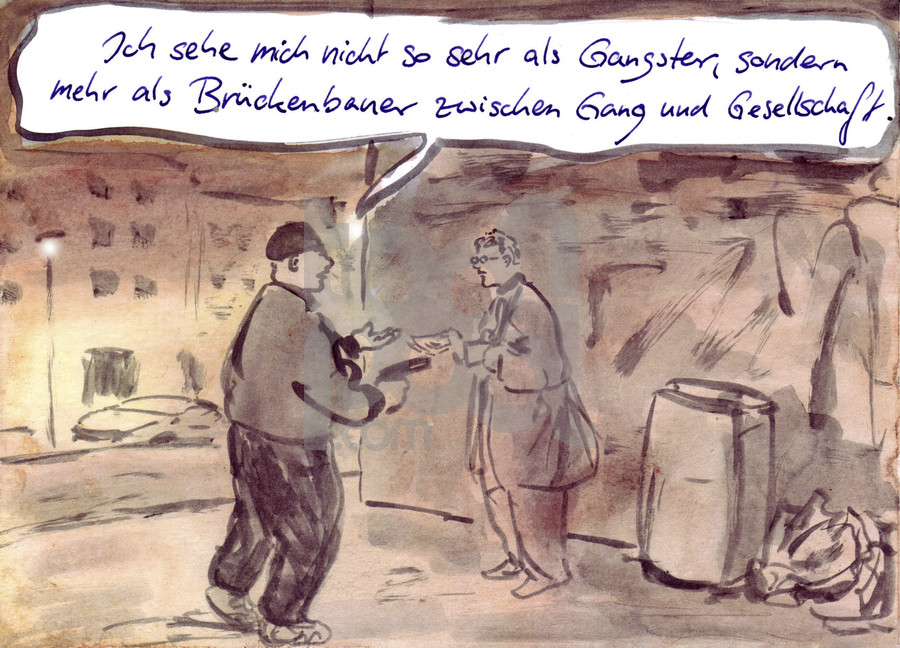 Ich sehe mich nicht so sehr als Gangster, sondern
mehr als Brückenbauer zwischen Gang und Gesellschaft.
.com